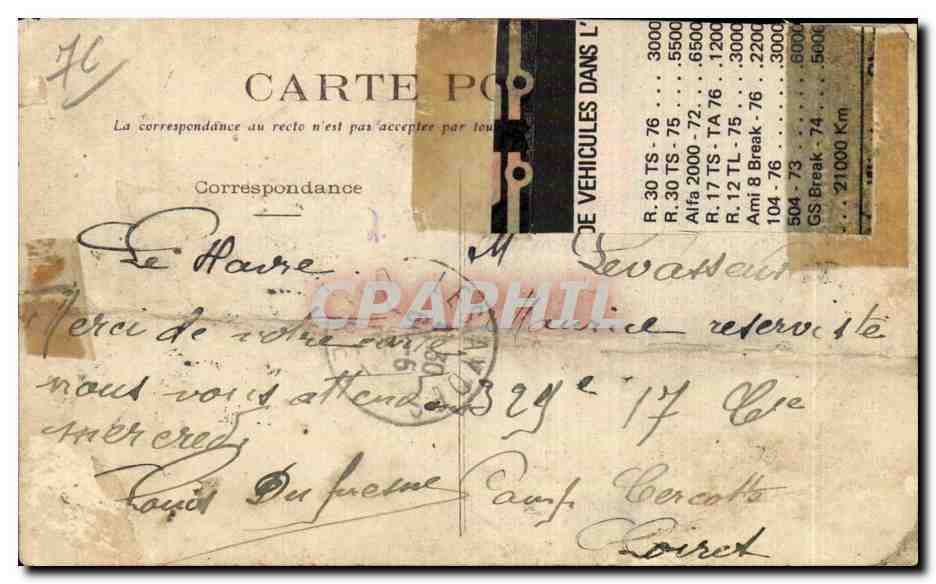 76
CARTE PO
La correspondance au recto n'est pas acceptée par tou
Correspondance
Le Havre
Merci de votre carte
nous vous attendons
mercredi
Louis Dufresne
M Levasseur
Maurice reserviste
329e 17 Cie
Camp Cercotte
Loiret
LE HAVRE
DE VEHICULES DANS L'
R. 30 TS - 76 ... 3000
R. 30 TS - 75 .... 5500
Alfa 2000 - 72 ... 6500
R. 17 TS - TA 76 . 1200
R. 12 TL - 75 .... 3000
Ami 8 Break - 76 . 2200
104 - 76 ........ 3000
504 - 73 ........ 6000
GS Break - 74 .... 5000
.... 21000 Km
CPAPHIL